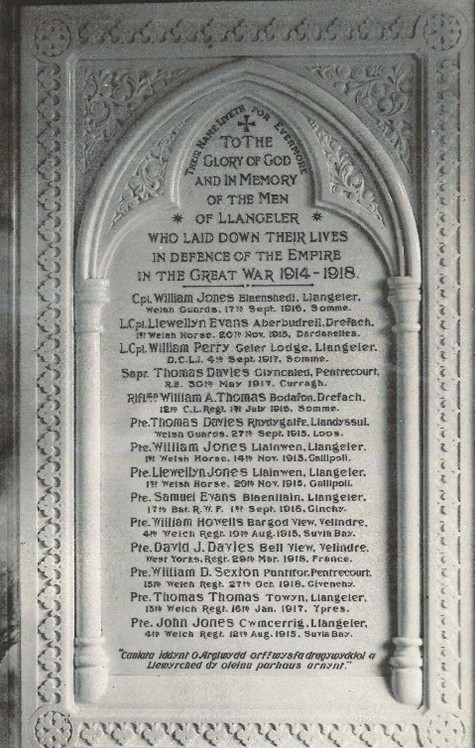 THEIR NAME LIVETH FOR EVERMORE
TO THE
GLORY OF GOD
AND IN MEMORY
OF THE MEN
OF LLANGELER
WHO LAID DOWN THEIR LIVES
IN DEFENCE OF THE EMPIRE
IN THE GREAT WAR 1914-1918.
Cpl. William Jones Blaenshedi, Llangeler,
Welsh Guards, 17th Sept. 1916, Somme.
L.Cpl. Llewellyn Evans Aberbudrell, Drefach,
1st Welsh Horse. 20th Nov. 1915, Dardanelles.
L.Cpl. William Perry Geler Lodge, Llangeler,
D.C.L.I. 4th Sept. 1917, Somme.
Sapr. Thomas Davies Glyncaled, Pentrecourt,
R.E. 30th May 1917. Curragh.
William A. Thomas Bodafon, Drefach,
12th C.L. Regt. 1st July 1916. Somme.
Pte. Thomas Davies Rhydygalfe, Llandyssul.
Welsh Guards, 27th Sept. 1915, Loos.
Pte. William Jones Llainwen, Llangeler,
1st Welsh Horse, 14th Nov. 1915, Gallipoli.
Pte. Llewellyn Jones Llainwen, Llangeler,
1st Welsh Horse, 20th Nov. 1915, Gallipoli.
Pte. Samuel Evans Blaenllain, Llangeler,
17th Bat. R.W.F. 1st Sept. 1916, Ginchy.
Pte. William Howells Bargod View, Velindre,
4th Welch Regt. 10th Aug. 1915, Suvla Bay.
Pte. David J. Davies Bell View, Velindre,
West Yorks. Regt. 29th Mar. 1918, France.
Pte. William D. Sexton Pantifor, Pentrecourt,
15th Welch Regt. 27th Oct. 1918, Givenchy.
Pte. Thomas Thomas Towyn, Llangeler,
15th Welch Regt. 16th Jan. 1917. Ypres.
Pte. John Jones Cwmcerrig, Llangeler,
4th Welch Regt. 12th Aug. 1915, Suvla Bay.
"Caniata iddynt O Arglwydd orffwysfa dragwyddol a
Llewyrched dy oleini parhaus arnynt."